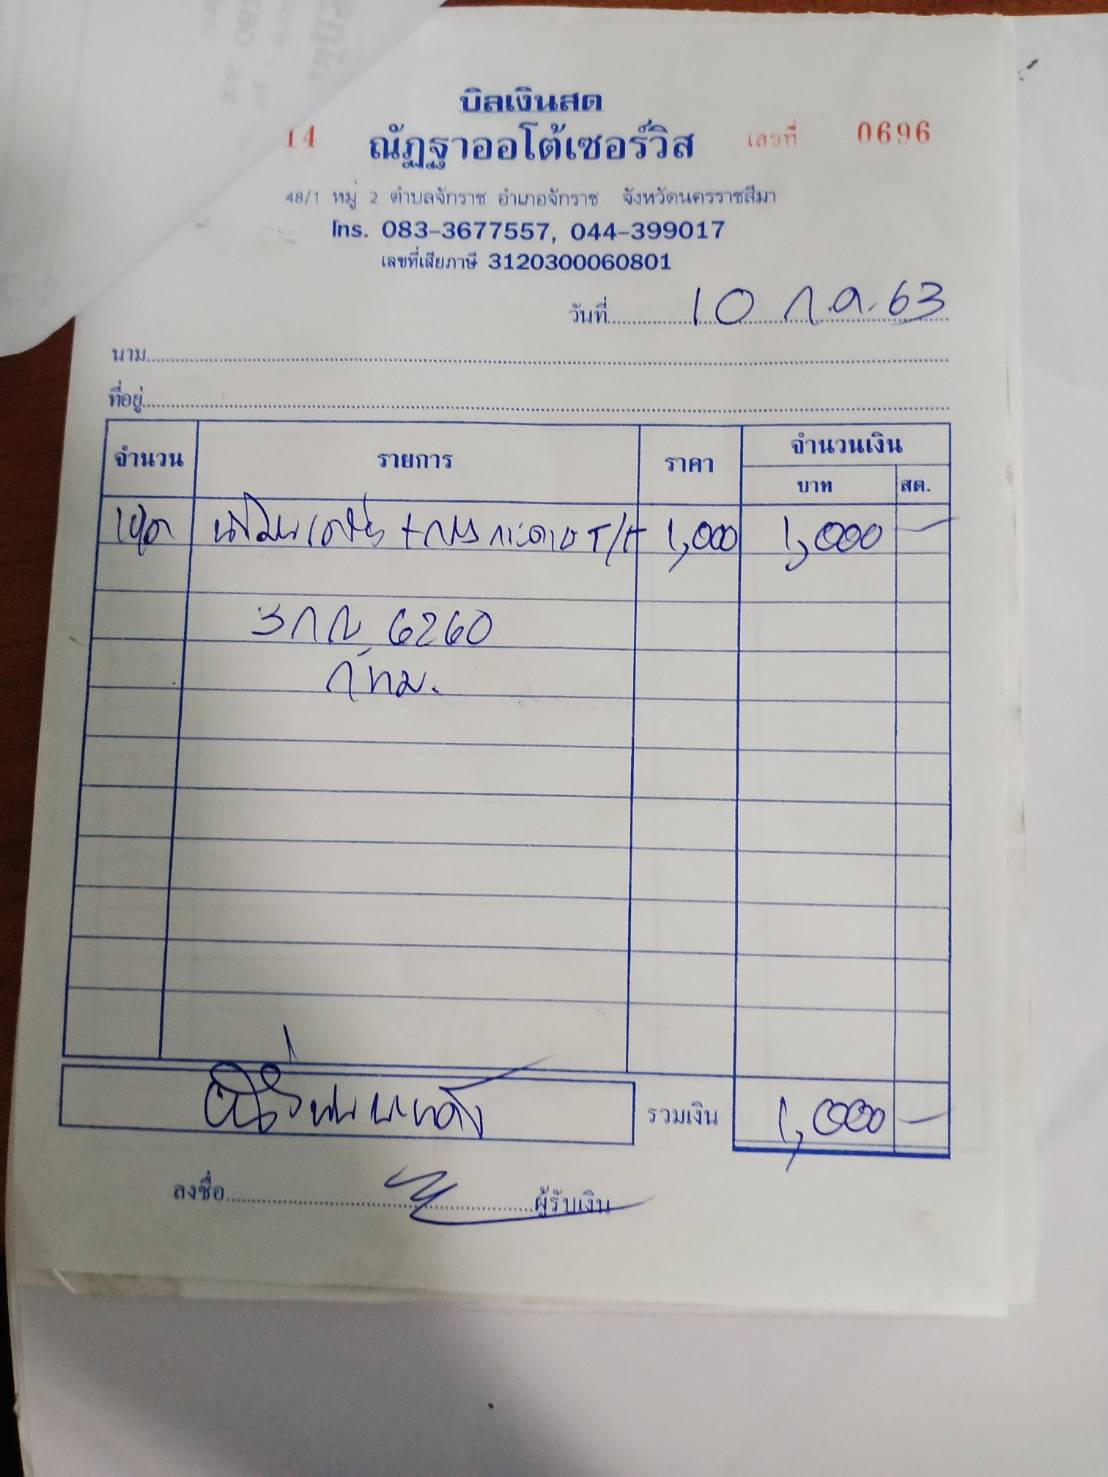 บิลเงินสด
14 ณัฏฐาออโต้เซอร์วิส เลขที่ 0696
48/1 หมู่ 2 ตำบลจักราช อำเภอจักราช จังหวัดนครราชสีมา
โทร. 083-3677557, 044-399017
เลขที่เสียภาษี 3120300060801
วันที่ 10 ก.ค. 63
นาม
ที่อยู่
จำนวน รายการ ราคา จำนวนเงิน
บาท สต.
1ชุด น้ำมันเครื่อง + กรอง T/H 1,000 1,000 -
3กณ 6260
กทม.
รวมเงิน 1,000 -
ลงชื่อ ผู้รับเงิน